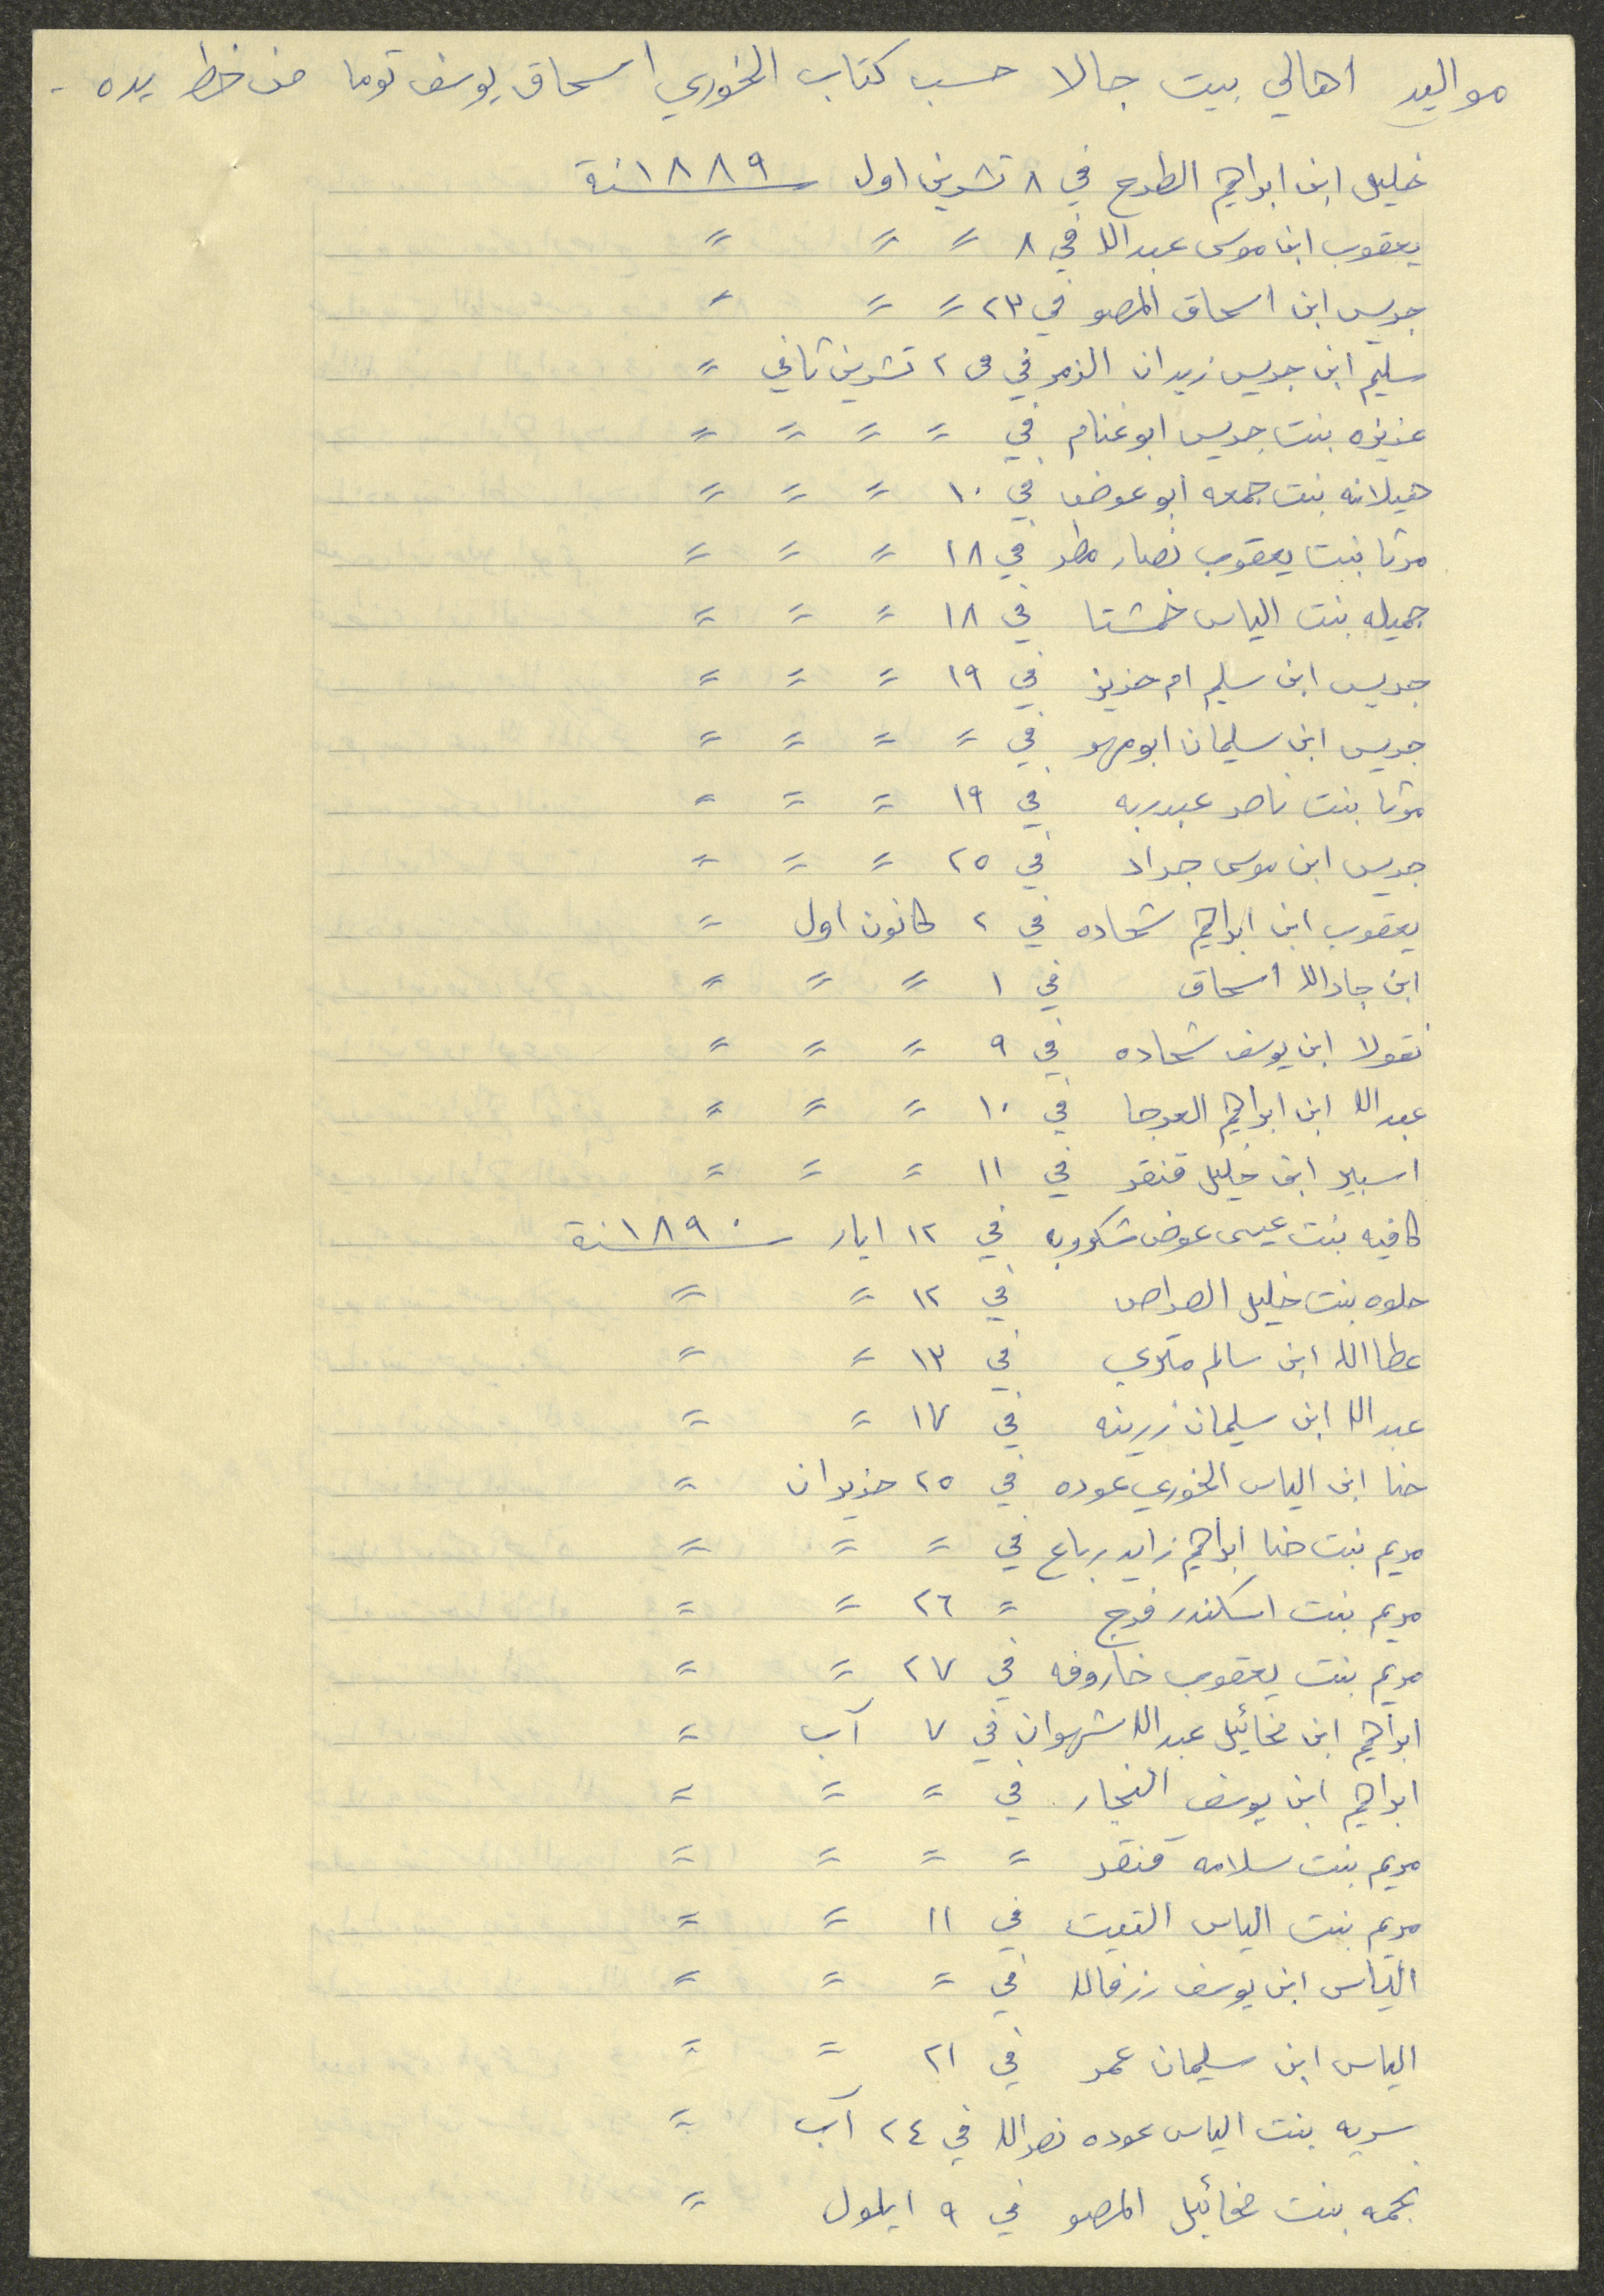 مواليد اهالي بيت جالا حسب كتاب الخوري اسحاق يوسف توما من خط يده -
خليل ابن ابراهيم الطرح في ٨ تشرين اول سنة ١٨٨٩
يعقوب ابن موسى عبدالله في ٨ = = =
جريس ابن اسحاق المصو في ٢٣ = = =
سليم ابن جريس زيدان الزمر في ٢ تشرين ثاني =
عزيزه بنت جريس ابو غنام في = = = =
هيلانه بنت جمعه ابو عوض في ١٠ = = =
مرتا بنت يعقوب نصار مطر في ١٨ = = =
جميله بنت الياس خمشتا في ١٨ = = =
جريس ابن سليم ام حزيز في ١٩ = = =
جريس ابن سليمان ابو مهر في = = = =
مرتا بنت ناصر عبدربه في ١٩ = = =
جريس ابن موسى جراد في ٢٥ = = =
يعقوب ابن ابراهيم شحاده في ٢ كانون اول =
ابن جادالله اسحاق في ١ = = =
نقولا ابن يوسف شحاده في ٩ = = =
عبدالله ابن ابراهيم العرجا في ١٠ = = =
اسبير ابن خليل قنقر في ١١ = = =
كافيه بنت عيسى عوض شكوويه في ١٢ ايار سنة ١٨٩٠
حلوه بنت خليل الصراص في ١٢ = =
عطاالله ابن سالم متري في ١٣ = =
عبدالله ابن سليمان زرينه في ١٧ = =
حنا ابن الياس الخوري عوده في ٢٥ حزيران =
مريم بنت حنا ابراهيم زايد رباع في = = =
مريم بنت اسكندر فرج = ٢٦ = =
مريم بنت يعقوب خاروفه في ٢٧ = =
ابراهيم ابن مخائيل عبدالله شهوان في ٧ آب =
ابراهيم ابن يوسف النجار في = = =
مريم بنت سلامه قنقر = = = =
مريم بنت الياس القيت في ١١ = =
الياس ابن يوسف رزقالله في = = =
الياس ابن سليمان عمر في ٢١ = =
سريه بنت الياس عوده نصرالله في ٢٤ آب =
نجمه بنت مخائيل المصو في ٩ ايلول =